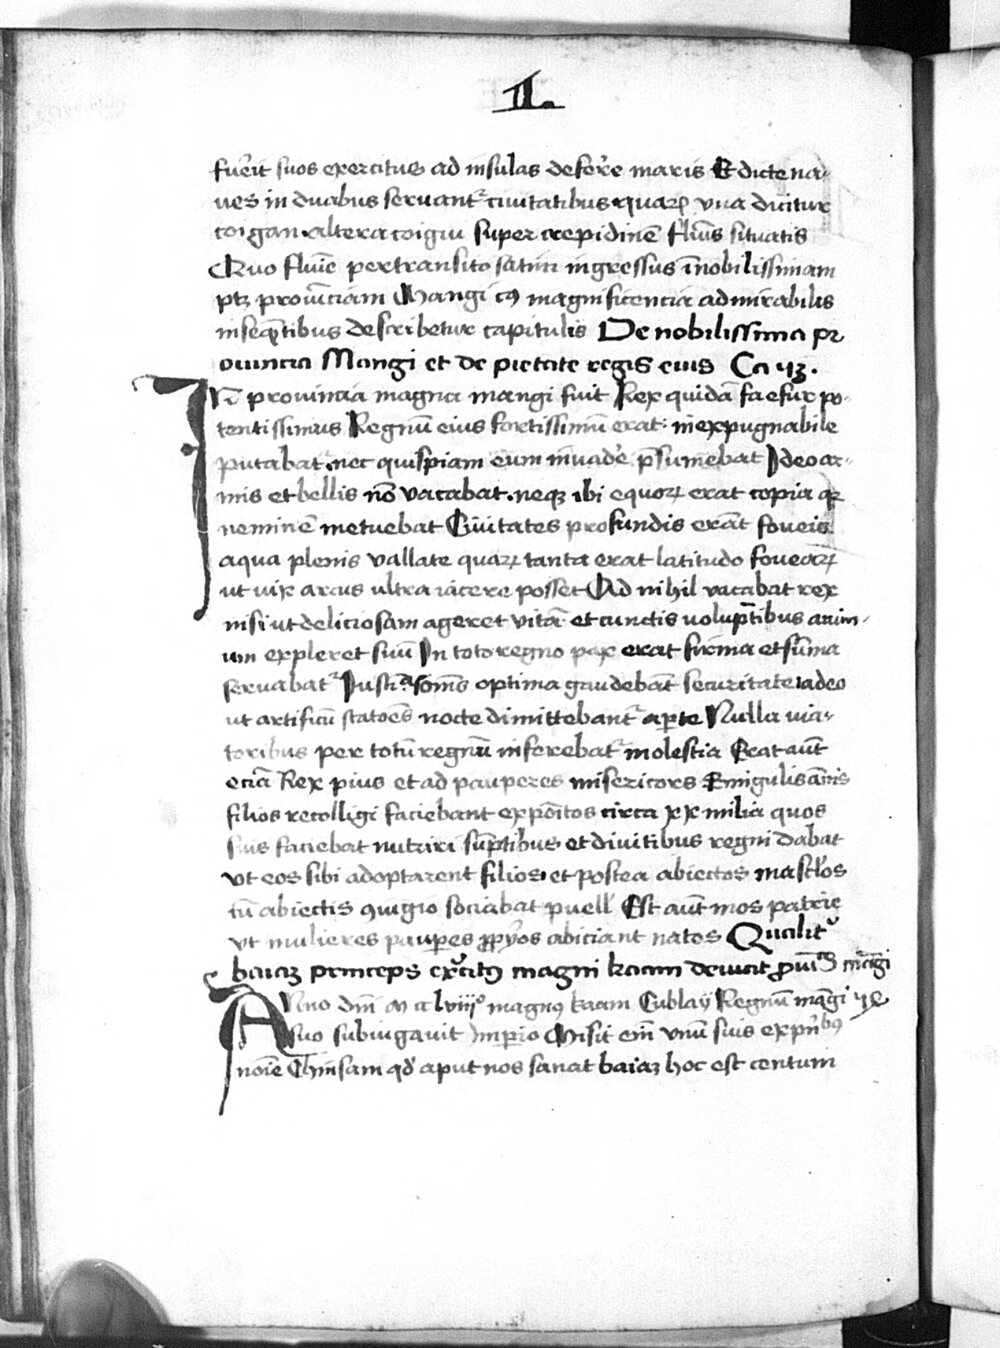 II.
fue̛rit suos exercitus ad insulas defer̛re maris Et dicte na-
ues in duabus seruantᷣ ciuitatibus quaꝝ vna dicitur
coigan altera coigiu super crepidinē fluu̅s situatis
Quo fluīe pertransito satim ingressus ī nobilissimam
ptꝫ prouīciam Mangi cꝰ magnificencia admirabilis
in seqn̄tibus describetur capitulis De nobilissima pr
ouincia Mangi et de pietate regis eius Ca 4ꝫ.
IN prouincia magna mangi fuit Rex quidā facfur po-
tentissimus Regnū eius fortissimū erat. inexpugnabile
putabatᷣ nec quispiam eum inuade̛ p̄sumebat Ideo ar-
mis et bellis nō vacabat. neqꝫ ibi equoꝝ erat copia qꝛ
neminē metuebat Ciuitates profundis erāt foueis
aqua plenis vallate quaꝝ tanta erat latitudo foueaꝝ
ut vix arcus ultra iacere posset Ad nihil vacabat rex
nisi ut deliciosam ageret vitā et cunctis volupt̄ibus anim-
um expleret suū In toto regno pax erat firma et sūma
seruabatᷣ Iusticᵃ. oms̄ optima gaudebāt securitate adeo
ut artificū statoēs nocte dimittebantᷣ aꝑte Nulla uia-
toribus per totū regnū inferebatᷣ molestia Erat aūt
eciā Rex pius et ad pauperes misericors singulis ān̄is
filios recolligi faciebant expōitos circa xx milia quos
suis faciebat nutriri sūptibus et diuitibus regni dabat
vt eos sibi adoptarent filios. et postea abiectos mascl̛os
cū abiectis ꝯiugio sociabat puell̛ Est aūt mos patrie
vt mulieres pauꝑes ꝓp̛os abiciant natos Qualitᷣ
baiaꝫ princeps exe̛citꝰ magni kaam deuicit ꝓuīᵃ māgi
ANno dn̄i M cc lviijº magnꝰ kaam Cublaÿ Regnū māgi
suo subiugauit Imꝑio Misit em̄ vnū suis expn̄bꝰ
noīe Chinsam qd̛ aput nos sonat baiaꝫ hoc est centum